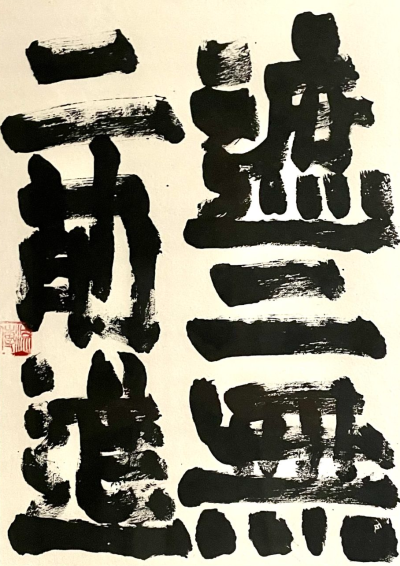 遮二無
二前進